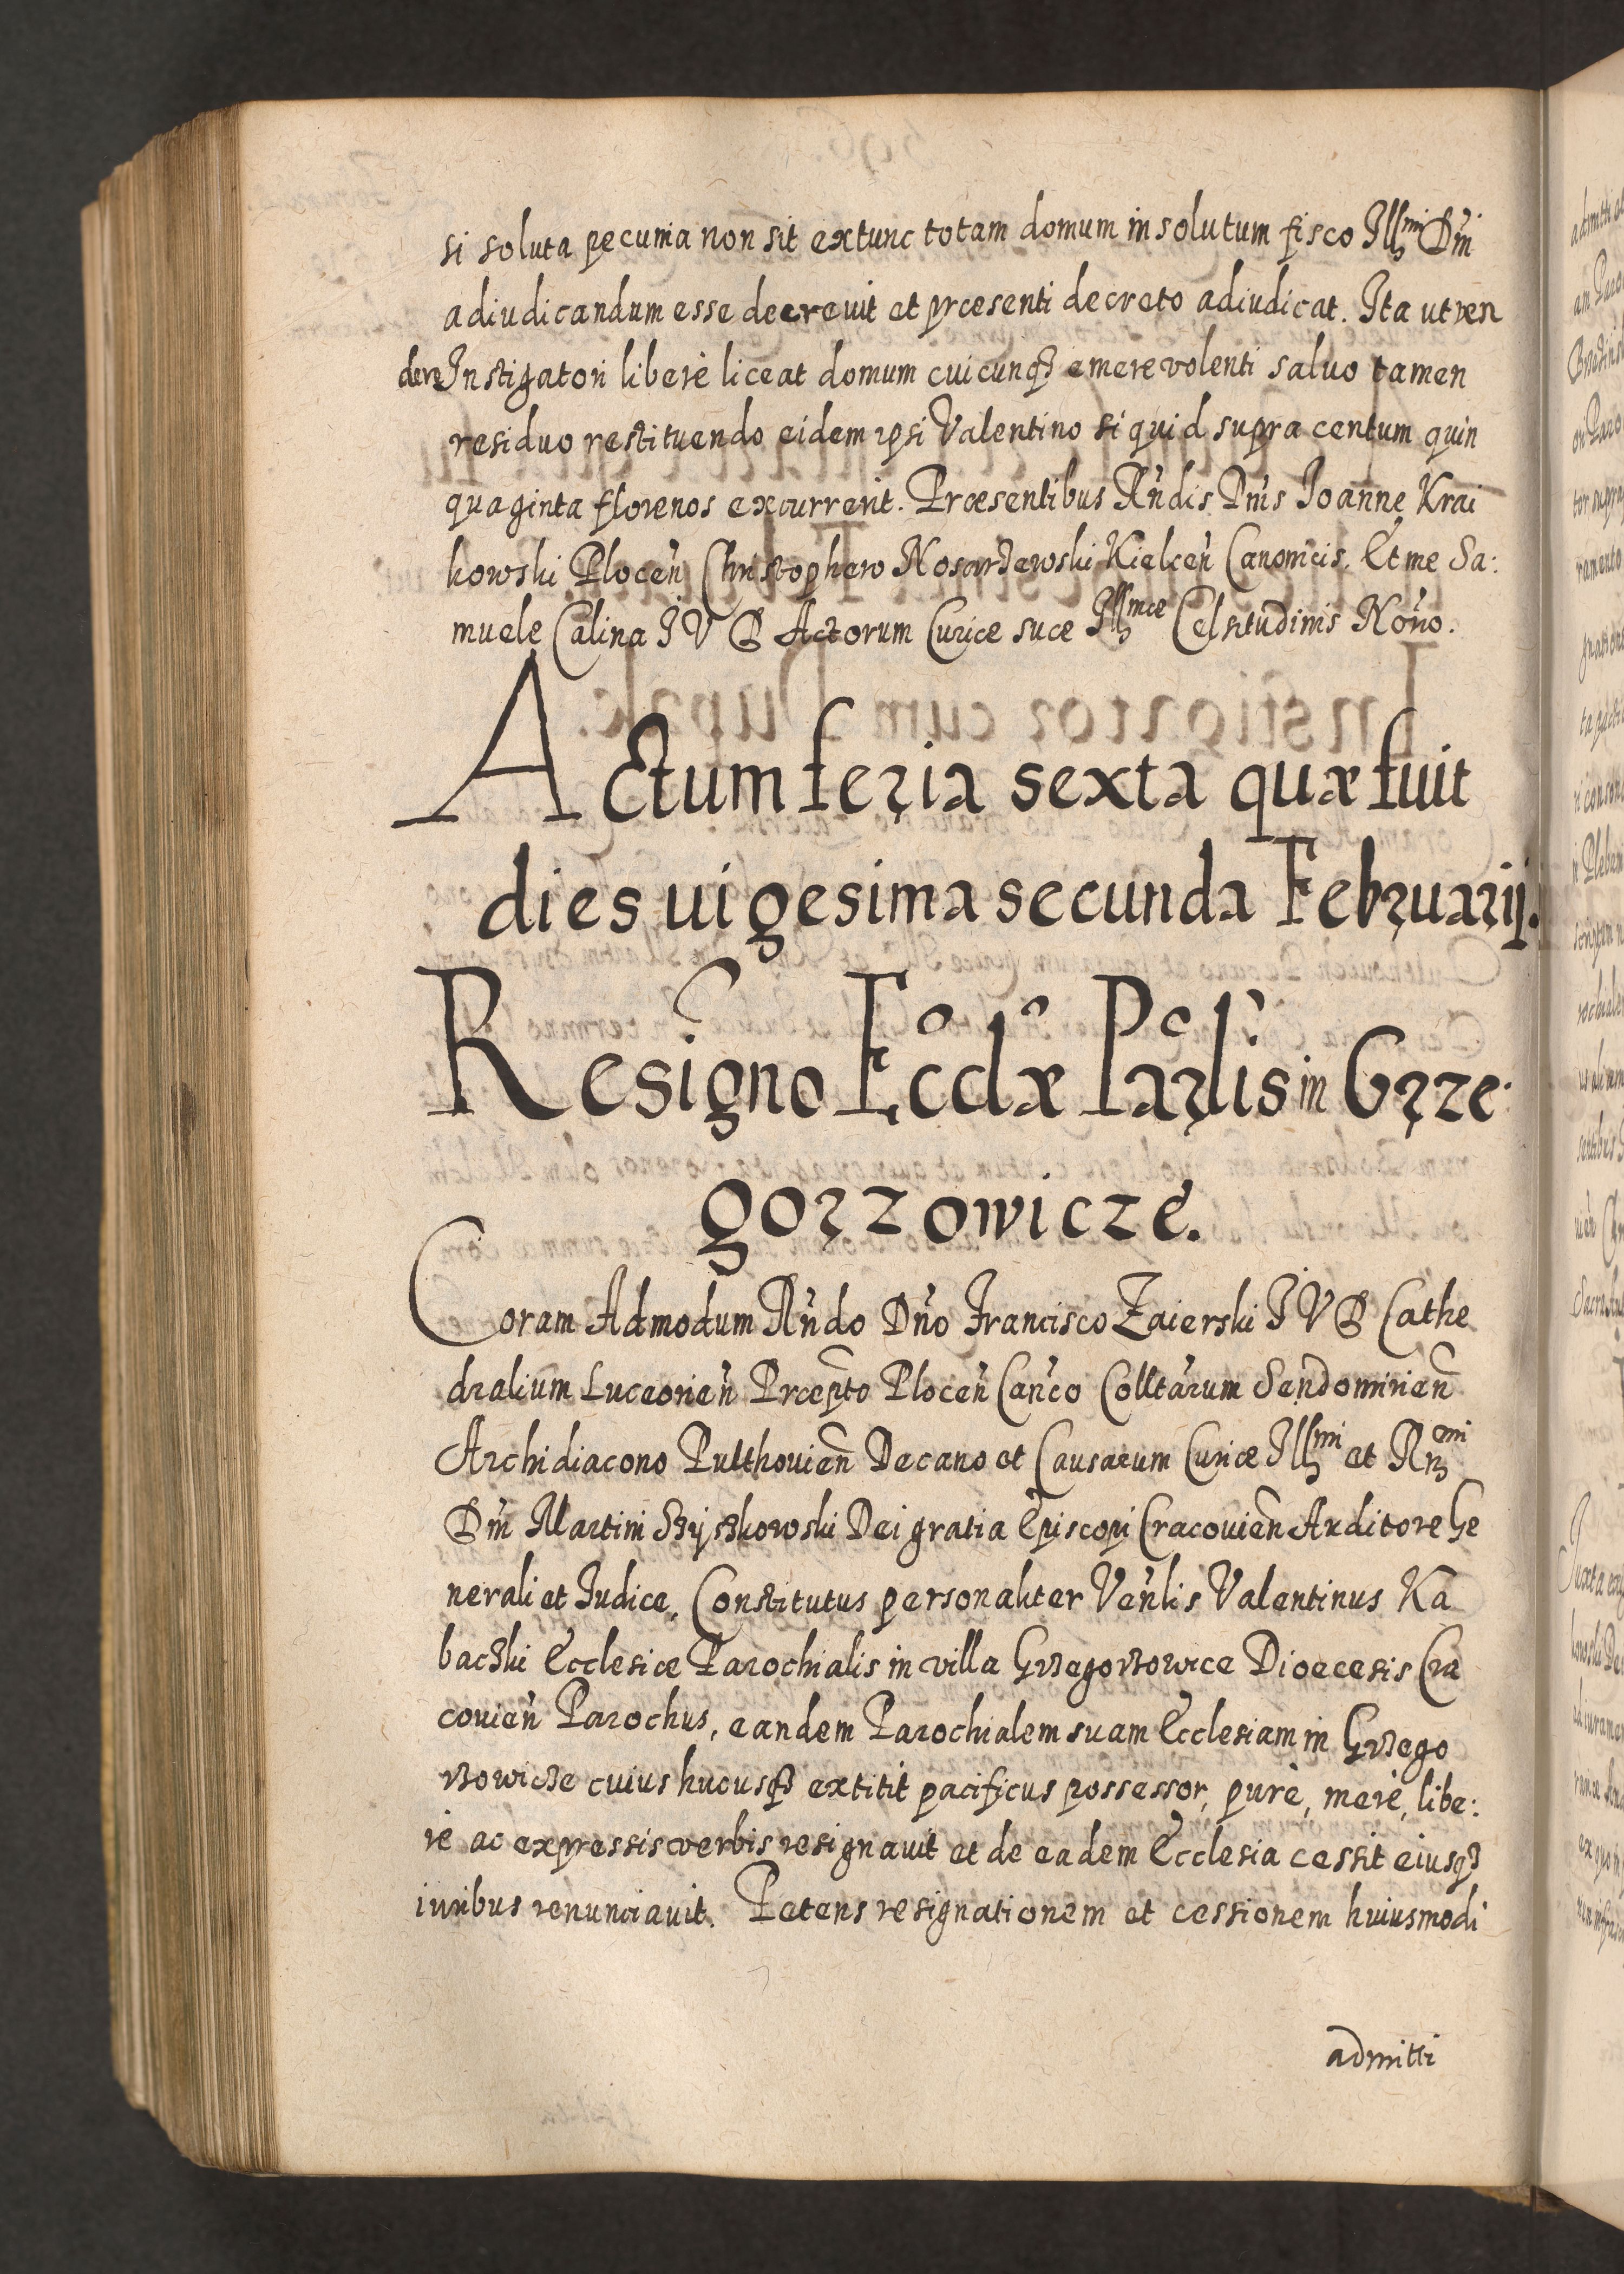 si soluta pecunia non sit extunc totam domum in solutum fisco Illmi Dni
adiudicandum esse decreuit et præsenti decreto adiudicat. Ita ut ven
dere Instigatori liberè liceat domum cuicunq₃ emere volenti saluo tamen
residuo restituendo eidem ipsi Valentino si quid supra centum quin
quaginta florenos excurrerit. Præsentibus Rndis Dnis Joanne Krai
kowski Plocen̄ Christophero Nosarzewski Kielcen̄ Canonicis. Et me Sa:
muele Calina I V D Actorum Curiæ suæ Illmæ Celsitudinis Nōno.
Actum feria sexta quæ fuit
dies uigesima secunda Februarij.
Resigno Ecclæ Parlis in Grze
gorzowicze.
Coram Admodum Rndo Dno Francisco Zaierski I V D Cathe
dralium Luceorien̄ Præpto Plocen̄ Canco Colltarum Sendomirien̄
Archidiacono Pulthouien̄ Decano et Causarum Curiæ Illmi et Rmi
Dni Martini Szyszkowski Dei gratia Episcopi Cracouien̄ Auditore Ge
nerali et Iudice. Constitutus personaliter Venlis Valentinus Ka
baczki Ecclesiæ Parochialis in villa Grzegorzowice Dioecesis Cra
couien̄ Parochus, eandem Parochialem suam Ecclesiam in Grzego
rzowicze cuius hucusq₃ extitit pacificus possessor, purè, merè, libe:
rè ac expressis verbis resignauit et de eadem Ecclesia cessit eiusq₃
iuribus renunciauit. Petens resignationem et cessionem huiusmodi
admitti